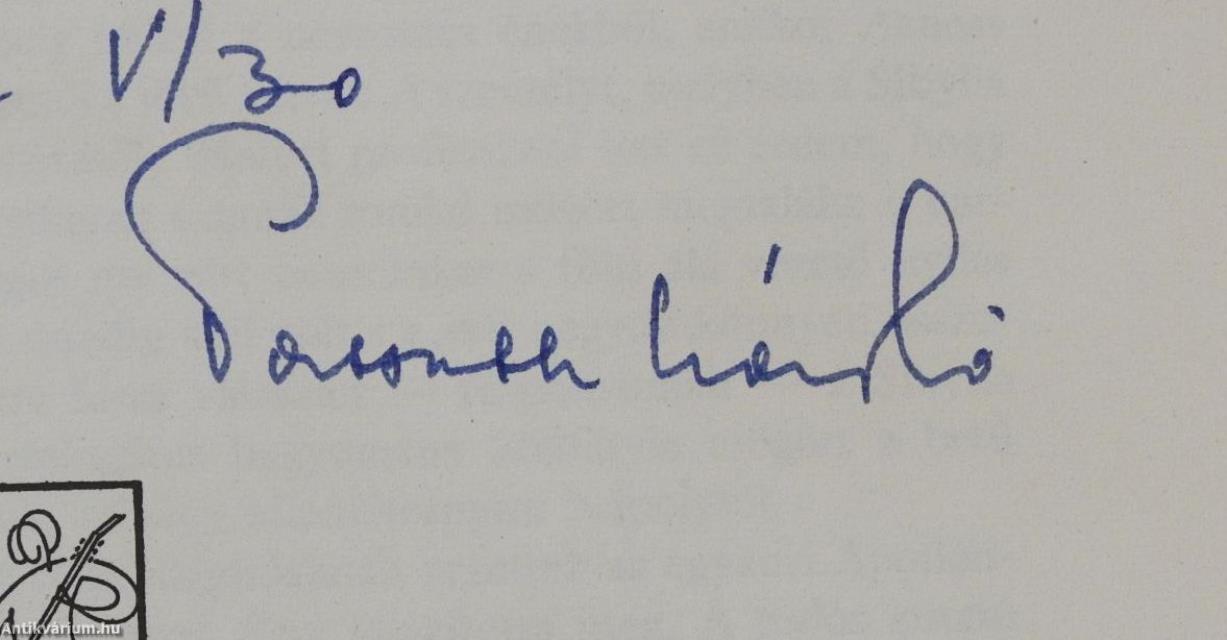 V/30
Passuth László
Antikvárium.hu